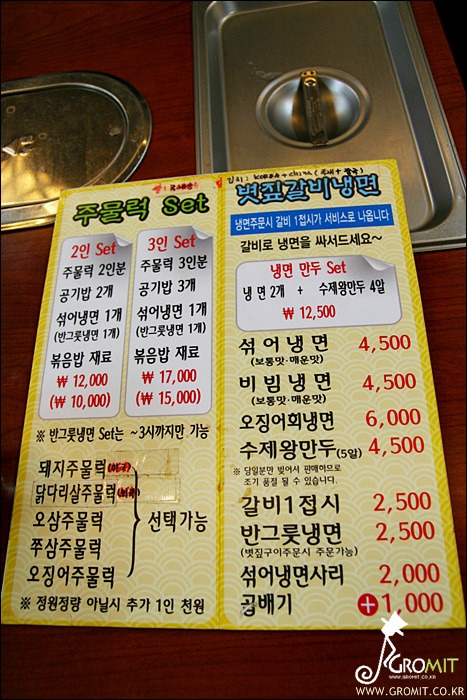 주물럭 Set
2인 Set
주물럭 2인분
공기밥 2개
섞어냉면 1개
(반그릇냉면 1개)
볶음밥 재료
₩ 12,000
(₩ 10,000)
3인 Set
주물럭 3인분
공기밥 3개
섞어냉면 1개
(반그릇냉면 1개)
볶음밥 재료
₩ 17,000
(₩ 15,000)
※ 반그릇냉면 Set는 ~3시까지만 가능
돼지주물럭
닭다리살주물럭
오삼주물럭
쭈삼주물럭
오징어주물럭
선택가능
※ 정원정량 아닐시 추가 1인 천원
김치: KOREA + china
볏짚갈비냉면
냉면주문시 갈비 1접시가 서비스로 나옵니다
갈비로 냉면을 싸서드세요~
냉면 만두 Set
냉면 2개 + 수제왕만두 4알
₩ 12,500
섞어냉면 4,500
(보통맛·매운맛)
비빔냉면 4,500
(보통맛·매운맛)
오징어회냉면 6,000
수제왕만두(5알) 4,500
※ 당일분만 빚어서 판매하므로
조기 품절 될 수 있습니다.
갈비1접시 2,500
반그릇냉면 2,500
(볏짚구이주문시 주문가능)
섞어냉면사리 2,000
곱배기 +1,000
GROMIT
WWW.GROMIT.CO.KR
WWW.GROMIT.CO.KR